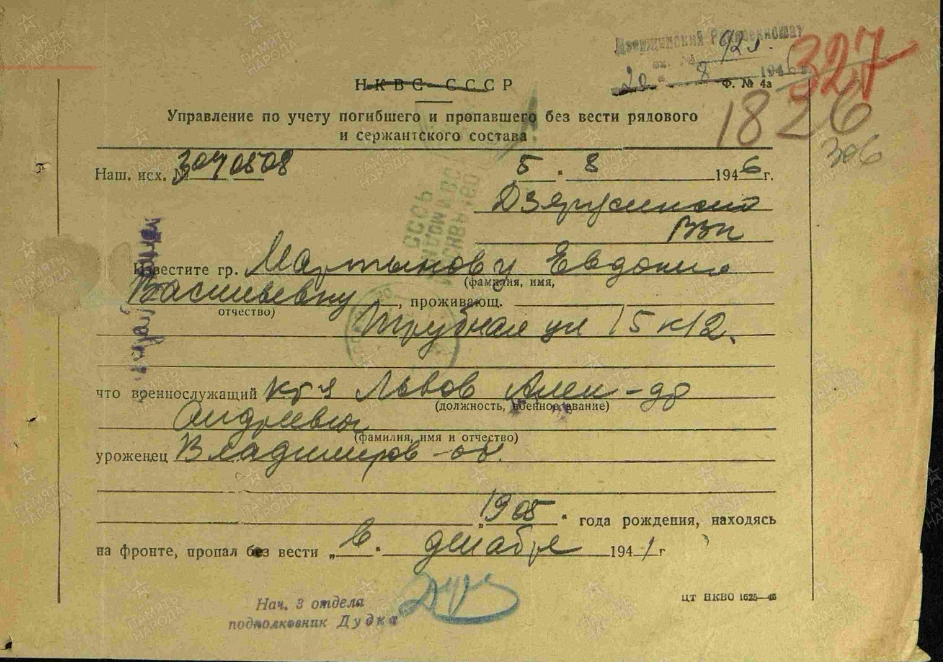 Дзержинский Райвоенкомат
20 8 1946
327
НКВС СССР
Ф. № 4а
1826
306
Управление по учету погибшего и пропавшего без вести рядового
и сержантского состава
Наш. исх. № 3070508
5. 8 1946 г.
Дзержинско
РВК
Известите гр. Мартынову Евдокию
(фамилия, имя,
Васильевну, проживающ.
отчество)
Трубная ул 15 к 12.
что военнослужащий кр-ц Львов Алек-др
(должность, военное звание)
Андреевич
(фамилия, имя и отчество)
уроженец Владимиров-об.
"1905" года рождения, находясь
на фронте, пропал без вести „в" декабре 1941 г
Нач. 3 отдела
подполковник Дудка
ЦТ НКВО 1625—45